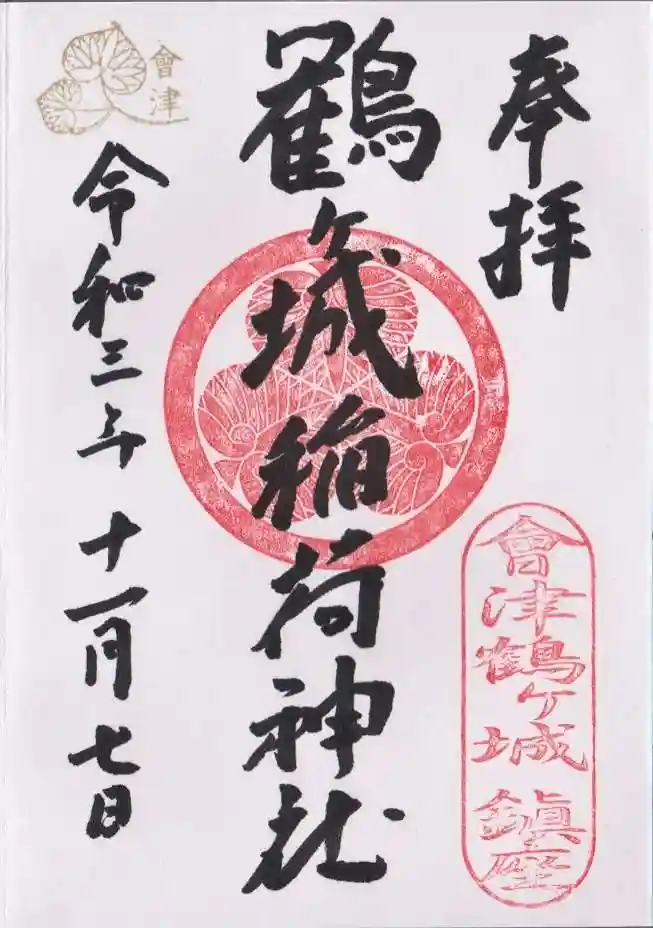 奉拝
會津鶴ケ城鎮座
鶴ケ城稲荷神社
會津
令和三年十一月七日